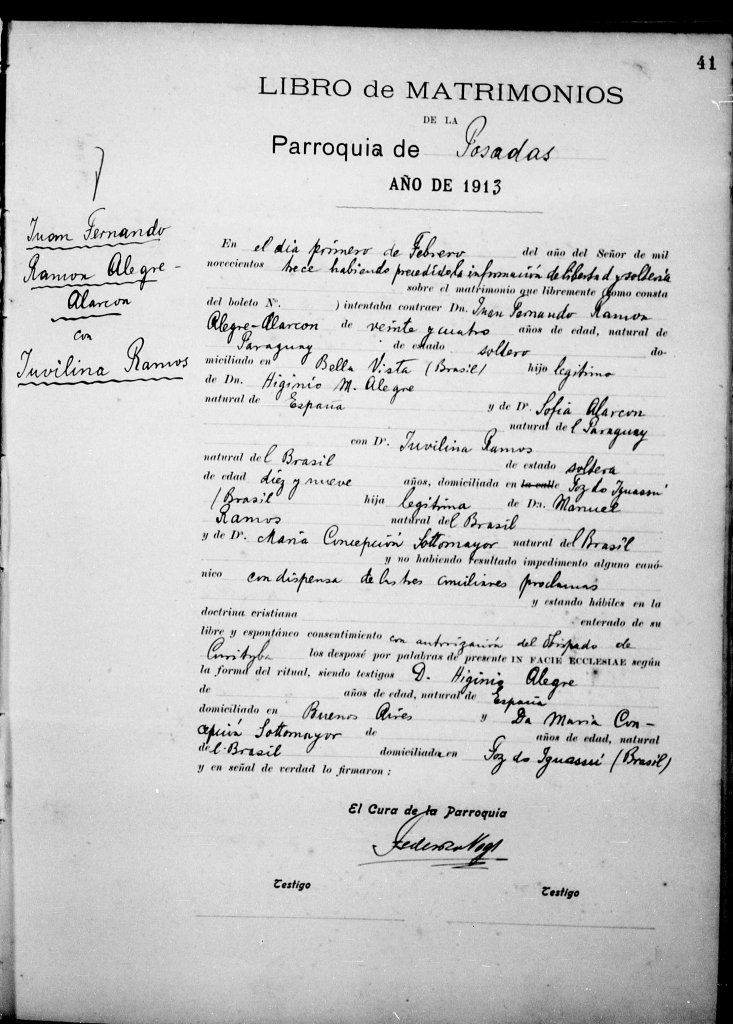 41
LIBRO de MATRIMONIOS
DE LA
Parroquia de Posadas
AÑO DE 1913
Juan Fernando
Ramon Alegre-
Alarcon
con
Juvilina Ramos
En el dia primero de Febrero del año del Señor de mil
novecientos trece habiendo precedido la información de libertad y solteria
sobre el matrimonio que libremente (como consta
del boleto Nº. ) intentaba contraer Dn. Juan Fernando Ramon
Alegre-Alarcon de veinte y cuatro años de edad, natural de
Paraguay de estado soltero do-
miciliado en Bella Vista (Brasil) hijo legitimo
de Dn. Higinio M. Alegre
natural de España y de Dª. Sofia Alarcon
natural del Paraguay
con Dª. Juvilina Ramos
natural del Brasil de estado soltera
de edad diez y nueve años, domiciliada en la calle Foz do Iguassú
(Brasil hija legitima de Dn. Manuel
Ramos natural del Brasil
y de Dª. Maria Concepción Sottomayor natural del Brasil
y no habiendo resultado impedimento alguno canó-
nico con dispensa de las tres conciliares proclamas
y estando hábiles en la
doctrina cristiana enterado de su
libre y espontáneo consentimiento con autorización del Obispado de
Curityba los desposé por palabras de presente IN FACIE ECCLESIAE según
la forma del ritual, siendo testigos D. Higinio Alegre
de años de edad, natural de España
domiciliado en Buenos Aires y Da Maria Con-
cepción Sottomayor de años de edad, natural
del Brasil domiciliada en Foz do Iguassú (Brasil)
y en señal de verdad lo firmaron:
El Cura de la Parroquia
Federico Vogt
Testigo
Testigo